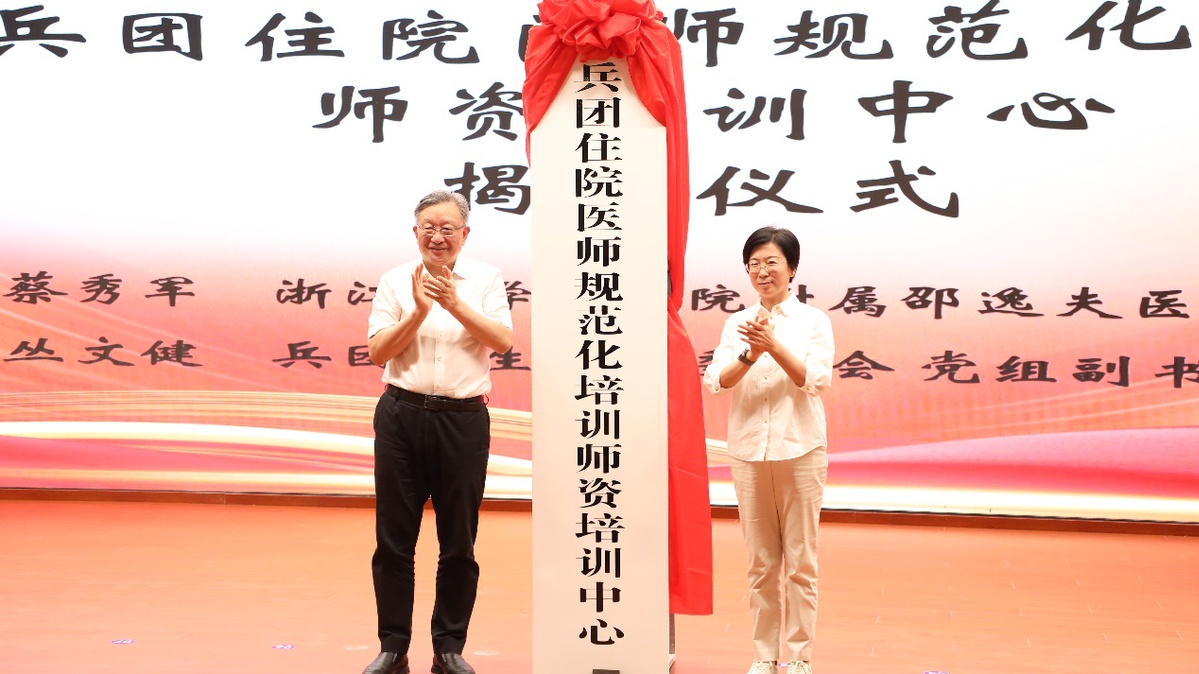 兵团住院 师规范化
师资 训中心
揭 仪式
蔡秀军 浙江 学 院附属邵逸夫医
丛文健 兵团 生 会党组副书
兵团住院医师规范化培训师资培训中心